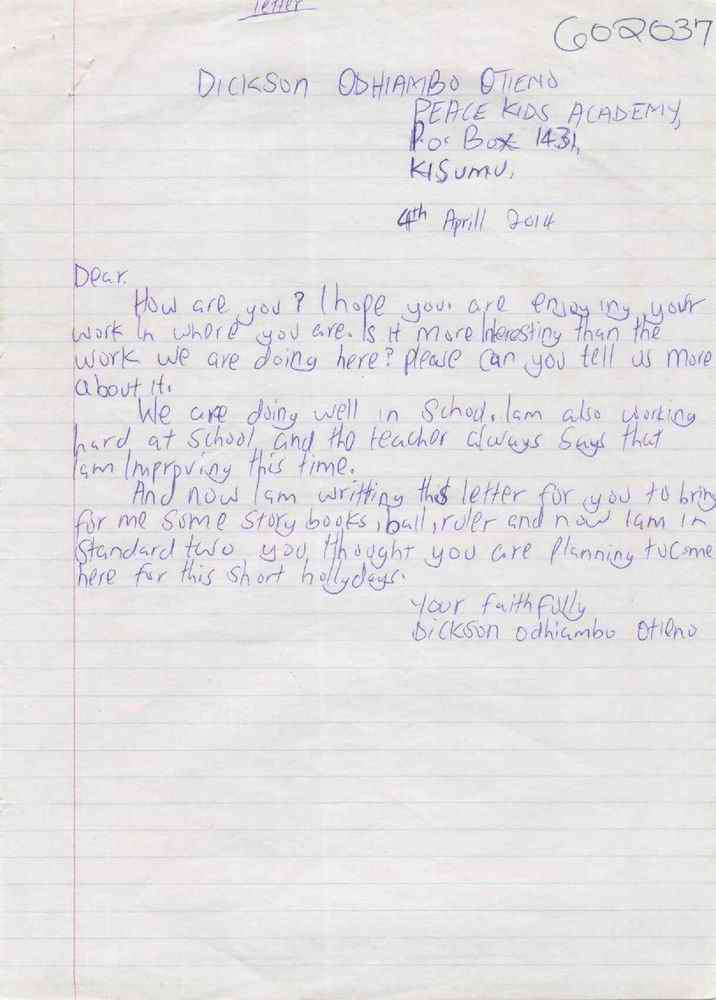 letter
602037
DICKSON ODHIAMBO OTIENO
PEACE KIDS ACADEMY,
P.o. Box 1431,
KISUMU,
4th Aprill 2014
Dear.
How are you? I hope you are enjoying your
work in where you are. Is it more Interestiny than the
work we are doing here? please can you tell us more
about it.
We are doing well in School. Iam also working
hard at School and the teacher always Says that
Iam Improving this time.
And now Iam writting this letter for you to bring
for me some story books, ball, ruler and now Iam in
Standard two you, thought you are planning to come
here for this short hollydays.
Your faithfully
Dickson odhiambo Otieno